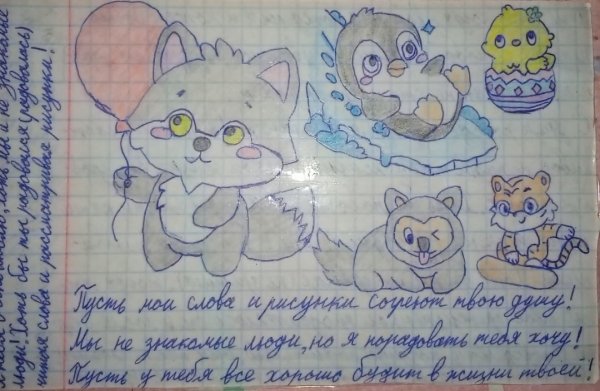 Пусть мои слова и рисунки согреют твою душу!
Мы не знакомые люди, но я порадовать тебя хочу!
Пусть у тебя все хорошо будит в жизни твоей!
хоть мы и не знакомые
люди! Хоть бы ты радовался (радовалась)
читая слова и рассматривая рисунки!